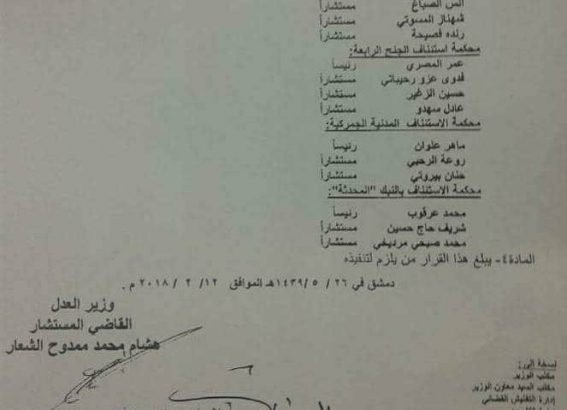 أنس الصباغ مستشاراً
شهناز المسوتي مستشاراً
رنده فصيحة مستشاراً
محكمة استئناف الجنح الرابعة:
عمر المصري رئيساً
فدوى عزو رحيباتي مستشاراً
حسين الزغير مستشاراً
عادل سهدو مستشاراً
محكمة الاستئناف المدنية الجمركية:
ماهر علوان رئيساً
روعة الرحبي مستشاراً
حنان بيروتي مستشاراً
محكمة الاستئناف بالنبك "المحدثة":
محمد عرقوب رئيساً
شريف حاج حسين مستشاراً
محمد صبحي مرديغي مستشاراً
المادة ٤- يبلغ هذا القرار من يلزم لتنفيذه
دمشق في ٢٦ / ٥ / ١٤٣٩هـ الموافق ١٢/ ٢ / ٢٠١٨ م.
وزير العدل
القاضي المستشار
هشام محمد ممدوح الشعار
نسخة إلى:
مكتب الوزير
مكتب السيد معاون الوزير
إدارة التفتيش القضائي